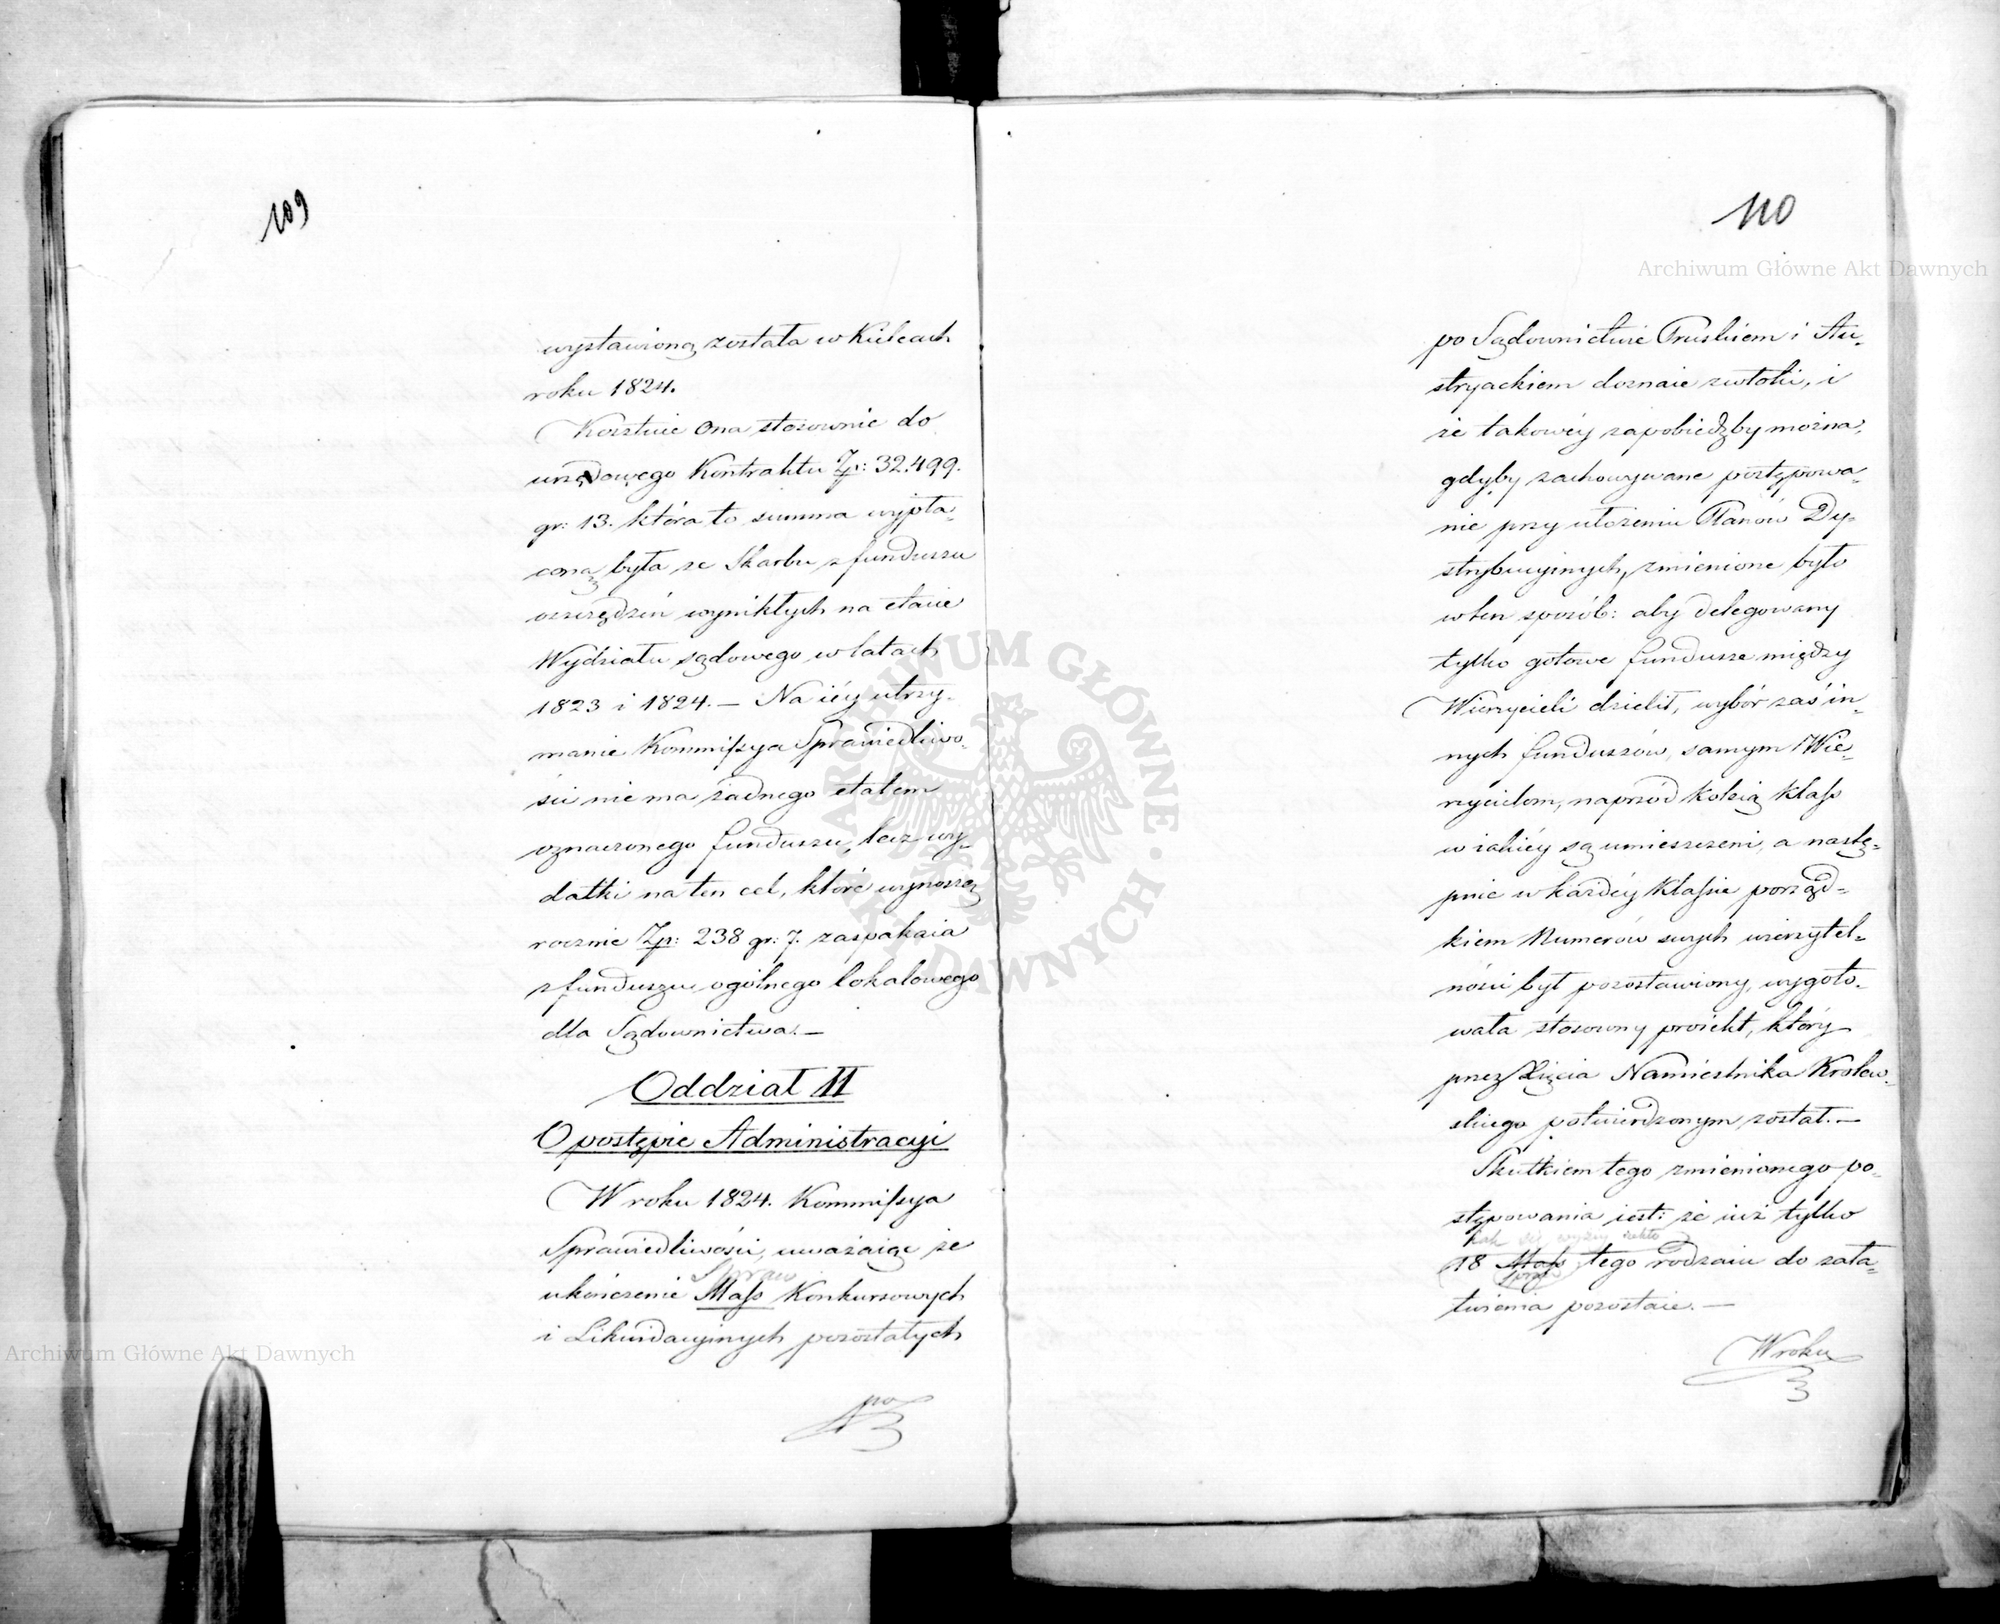 109
wystawioną została w Kielcach
roku 1824.
Kosztuie Ona stosownie do
urzędowego Kontraktu Zp: 32.499.
gr: 13. która to summa wypła-
coną była ze Skarbu z funduszu
oszczędzeń wynikłych na etacie
Wydziału sądowego w latach
1823 i 1824. — Na iéy utrzy-
manie Kommissya Sprawiedliwo-
ści niema żadnego etatem
oznaczonego funduszu, lecz wy-
datki na ten cel, które wynoszą
rocznie Zp: 238 gr: 7. zaspakaia
z funduszu ogólnego lokalowego
dla Sądownictwa. —
Oddział II
O postępie Administracyi
W roku 1824. Kommissya
Sprawiedliwości, uważaiąc że
Spraw
ukończenie Mass Konkursowych
i Likwidacyinych pozostałych
po
110
po Sądownictwie Pruskiem i Au-
stryackiem doznaie zwłoki, i
że takowéy zapobiedzby można,
gdyby zachowywane postępowa-
nie przy ułożeniu Planów Dy-
strybucyinych, zmienione było
w ten sposób: aby delegowany
tylko gotowe fundusze między
Wierzycieli dzielił, wybór zaś in-
nych funduszów, samym Wie-
rzycielom, naprzód koleią klass
w iakiéy są umieszczeni, a nastę-
pnie w każdéy klassie porząd-
kiem Numerów swych wierzytel-
ności był pozostawiony, wygoto-
wała stosowny proiekt, który
przez Xięcia Namiestnika Królew-
skiego potwierdzonym został. —
Skutkiem tego zmienionego po-
stępowania iest: że iuż tylko
iak się wyżey rzekło
18 Mass tego rodzaiu do zała-
spraw
twienia pozostaie. —
W roku
Archiwum Główne Akt Dawnych
Archiwum Główne Akt Dawnych
ARCHIWUM GŁÓWNE AKT DAWNYCH